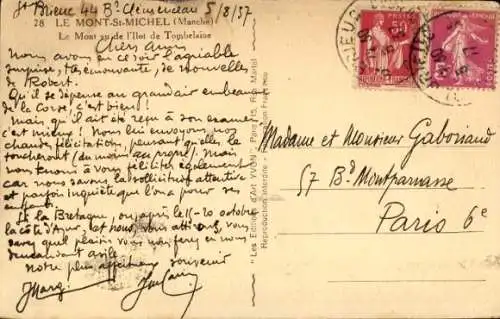 St Brieuc 44 Bd Clemenceau 5/8/37
28 LE MONT-St-MICHEL (Manche)
Le Mont vu de l'Ilot de Tombelaine
Chers Amis
nous avons eu ce soir l'agréable
surprise, très émouvante, de nouvelles
de Robert.
Qu'il se dépense au grand air embaumé
de la Corse, c'est bien!
Mais qu'il ait été reçu à son examen
c'est mieux! Nous lui envoyons nos
chaudes félicitations, pensant qu'elles le
toucheront (du moins au propre). Mais
nous tenons à vous féliciter également
car nous savons la sollicitude attentive
et parfois inquiète que l'on a pour ses
enfants.
Si la Bretagne, ou après le 15-20 octobre
la côte d'Azur, et nous, vous attirons, vous
savez quel plaisir vous nous ferez en nous
demandant asile
notre plus affectueux souvenir
Marg.
Les Editions d'Art YVON - Paris, 15, Rue Martel
Reproduction interdite - Fabrication Française
POSTES
Madame et Monsieur Gaboriaud
57 Bd Montparnasse
Paris 6e